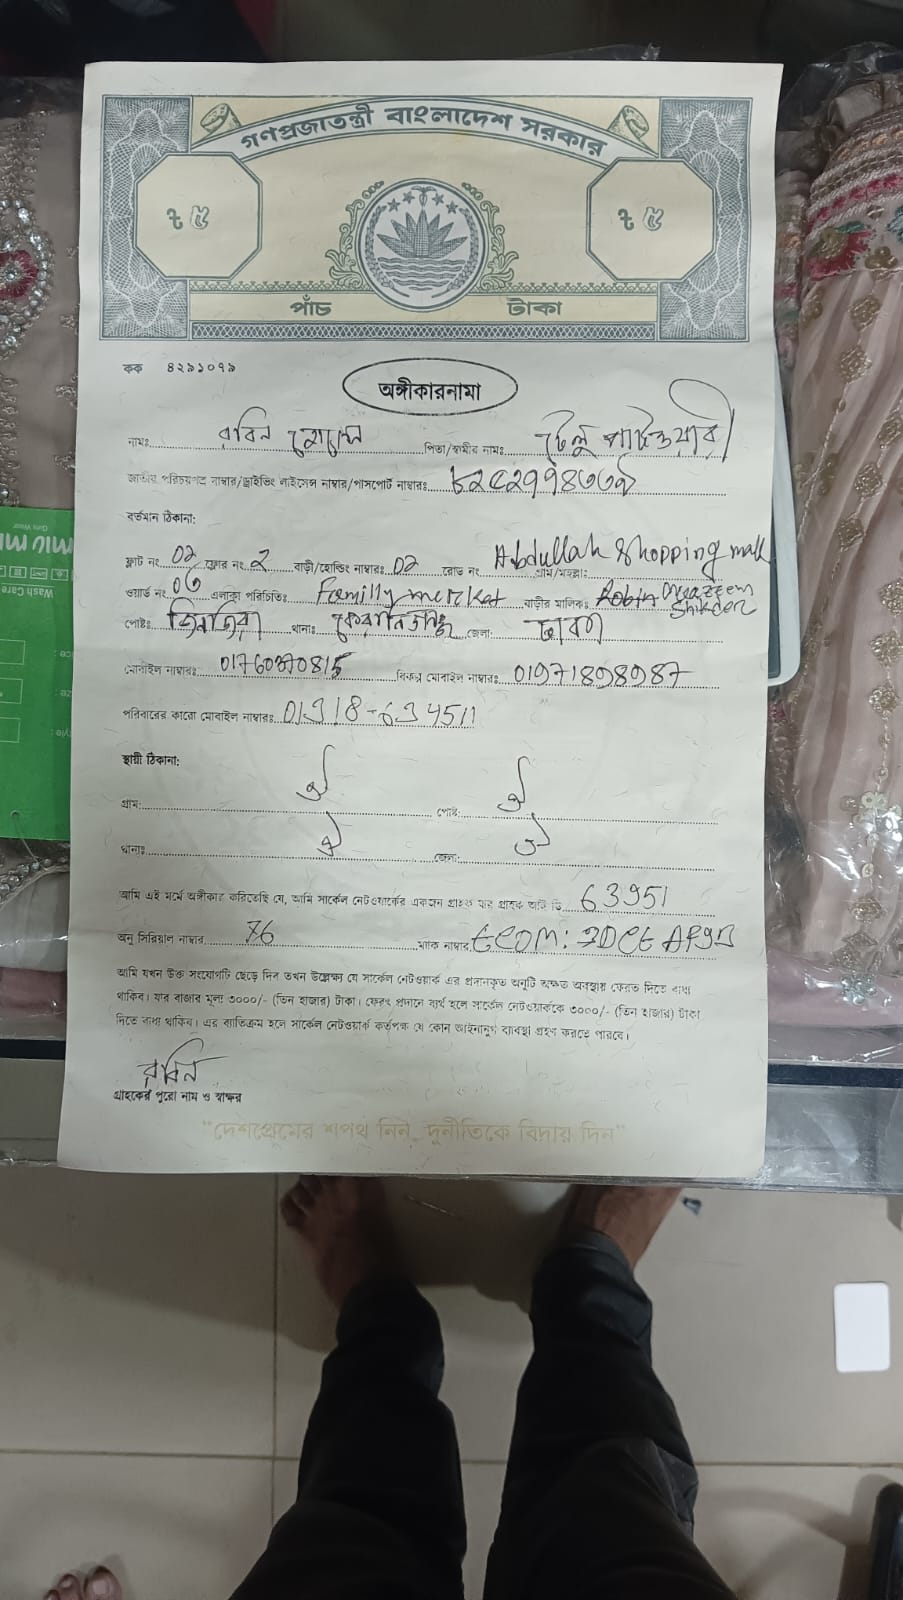 গণপ্রজাতন্ত্রী বাংলাদেশ সরকার
৳ ৫ ৳ ৫
পাঁচ টাকা
কক ৪২৯১০৭৯
অঙ্গীকারনামা
নামঃ রবিন হোসেন পিতা/স্বামীর নামঃ টেলু পাটওয়ারী
জাতীয় পরিচয়পত্র নাম্বার/ড্রাইভিং লাইসেন্স নাম্বার/পাসপোর্ট নাম্বারঃ ৮২৫২৭৭৪৩৩৯
বর্তমান ঠিকানা:
ফ্লাট নং 02 ফ্লোর নং 2 বাড়ী/হোল্ডিং নাম্বারঃ 02 রোড নং গ্রাম/মহল্লা: Abdullah Shopping mall
ওয়ার্ড নং 06 এলাকা পরিচিতিঃ Familly mercket বাড়ীর মালিকঃ Robin Moazzem Shikder
পোষ্টঃ জিনজিরা থানাঃ কেরানিগঞ্জ জেলা: ঢাকা
মোবাইল নাম্বারঃ 01760370815 বিকল্প মোবাইল নাম্বারঃ 01971898987
পরিবারের কারো মোবাইল নাম্বারঃ 01318-634511
স্থায়ী ঠিকানা:
গ্রাম: ঐ পোষ্ট: ঐ
থানাঃ ঐ জেলা: ঐ
আমি এই মর্মে অঙ্গীকার করিতেছি যে, আমি সার্কেল নেটওয়ার্কের একজন গ্রাহক যার গ্রাহক আই ডি 63951
অনু সিরিয়াল নাম্বার 76 ম্যাক নাম্বার
আমি যখন উক্ত সংযোগটি ছেড়ে দিব তখন উল্লেক্ষ্য যে সার্কেল নেটওয়ার্ক এর প্রদানকৃত অনুটি অক্ষত অবস্থায় ফেরত দিতে বাধ্য
থাকিব। যার বাজার মূল্য ৩০০০/- (তিন হাজার) টাকা। ফেরৎ প্রদানে ব্যর্থ হলে সার্কেল নেটওয়ার্ককে ৩০০০/- (তিন হাজার) টাকা
দিতে বাধ্য থাকিব। এর ব্যতিক্রম হলে সার্কেল নেটওয়ার্ক কর্তৃপক্ষ যে কোন আইনানুগ ব্যবস্থা গ্রহণ করতে পারবে।
রবিন
গ্রাহকের পুরো নাম ও স্বাক্ষর
"দেশপ্রেমের শপথ নিন, দুর্নীতিকে বিদায় দিন"